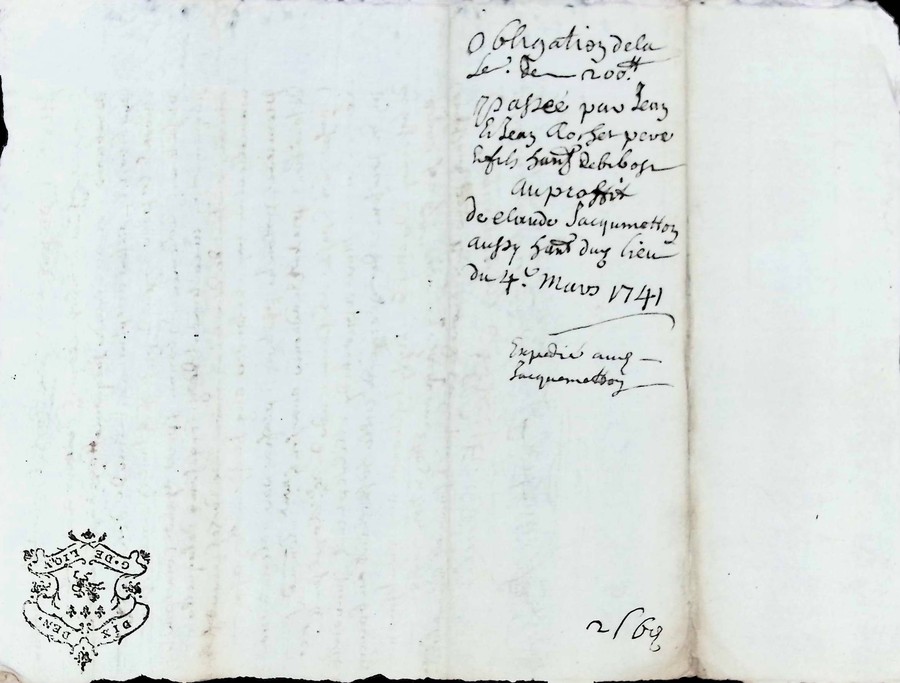 Obligation de la
Se. De 200tt
passée par Jean
Et Jean Rosset pere
Et fils hants de
au proffit
de Claude Jacquemetton
aussy hant dud lieu
du 4e Mars 1741
Expedié aud
Jacquemetton
G·DE·LION
DIX DEN·